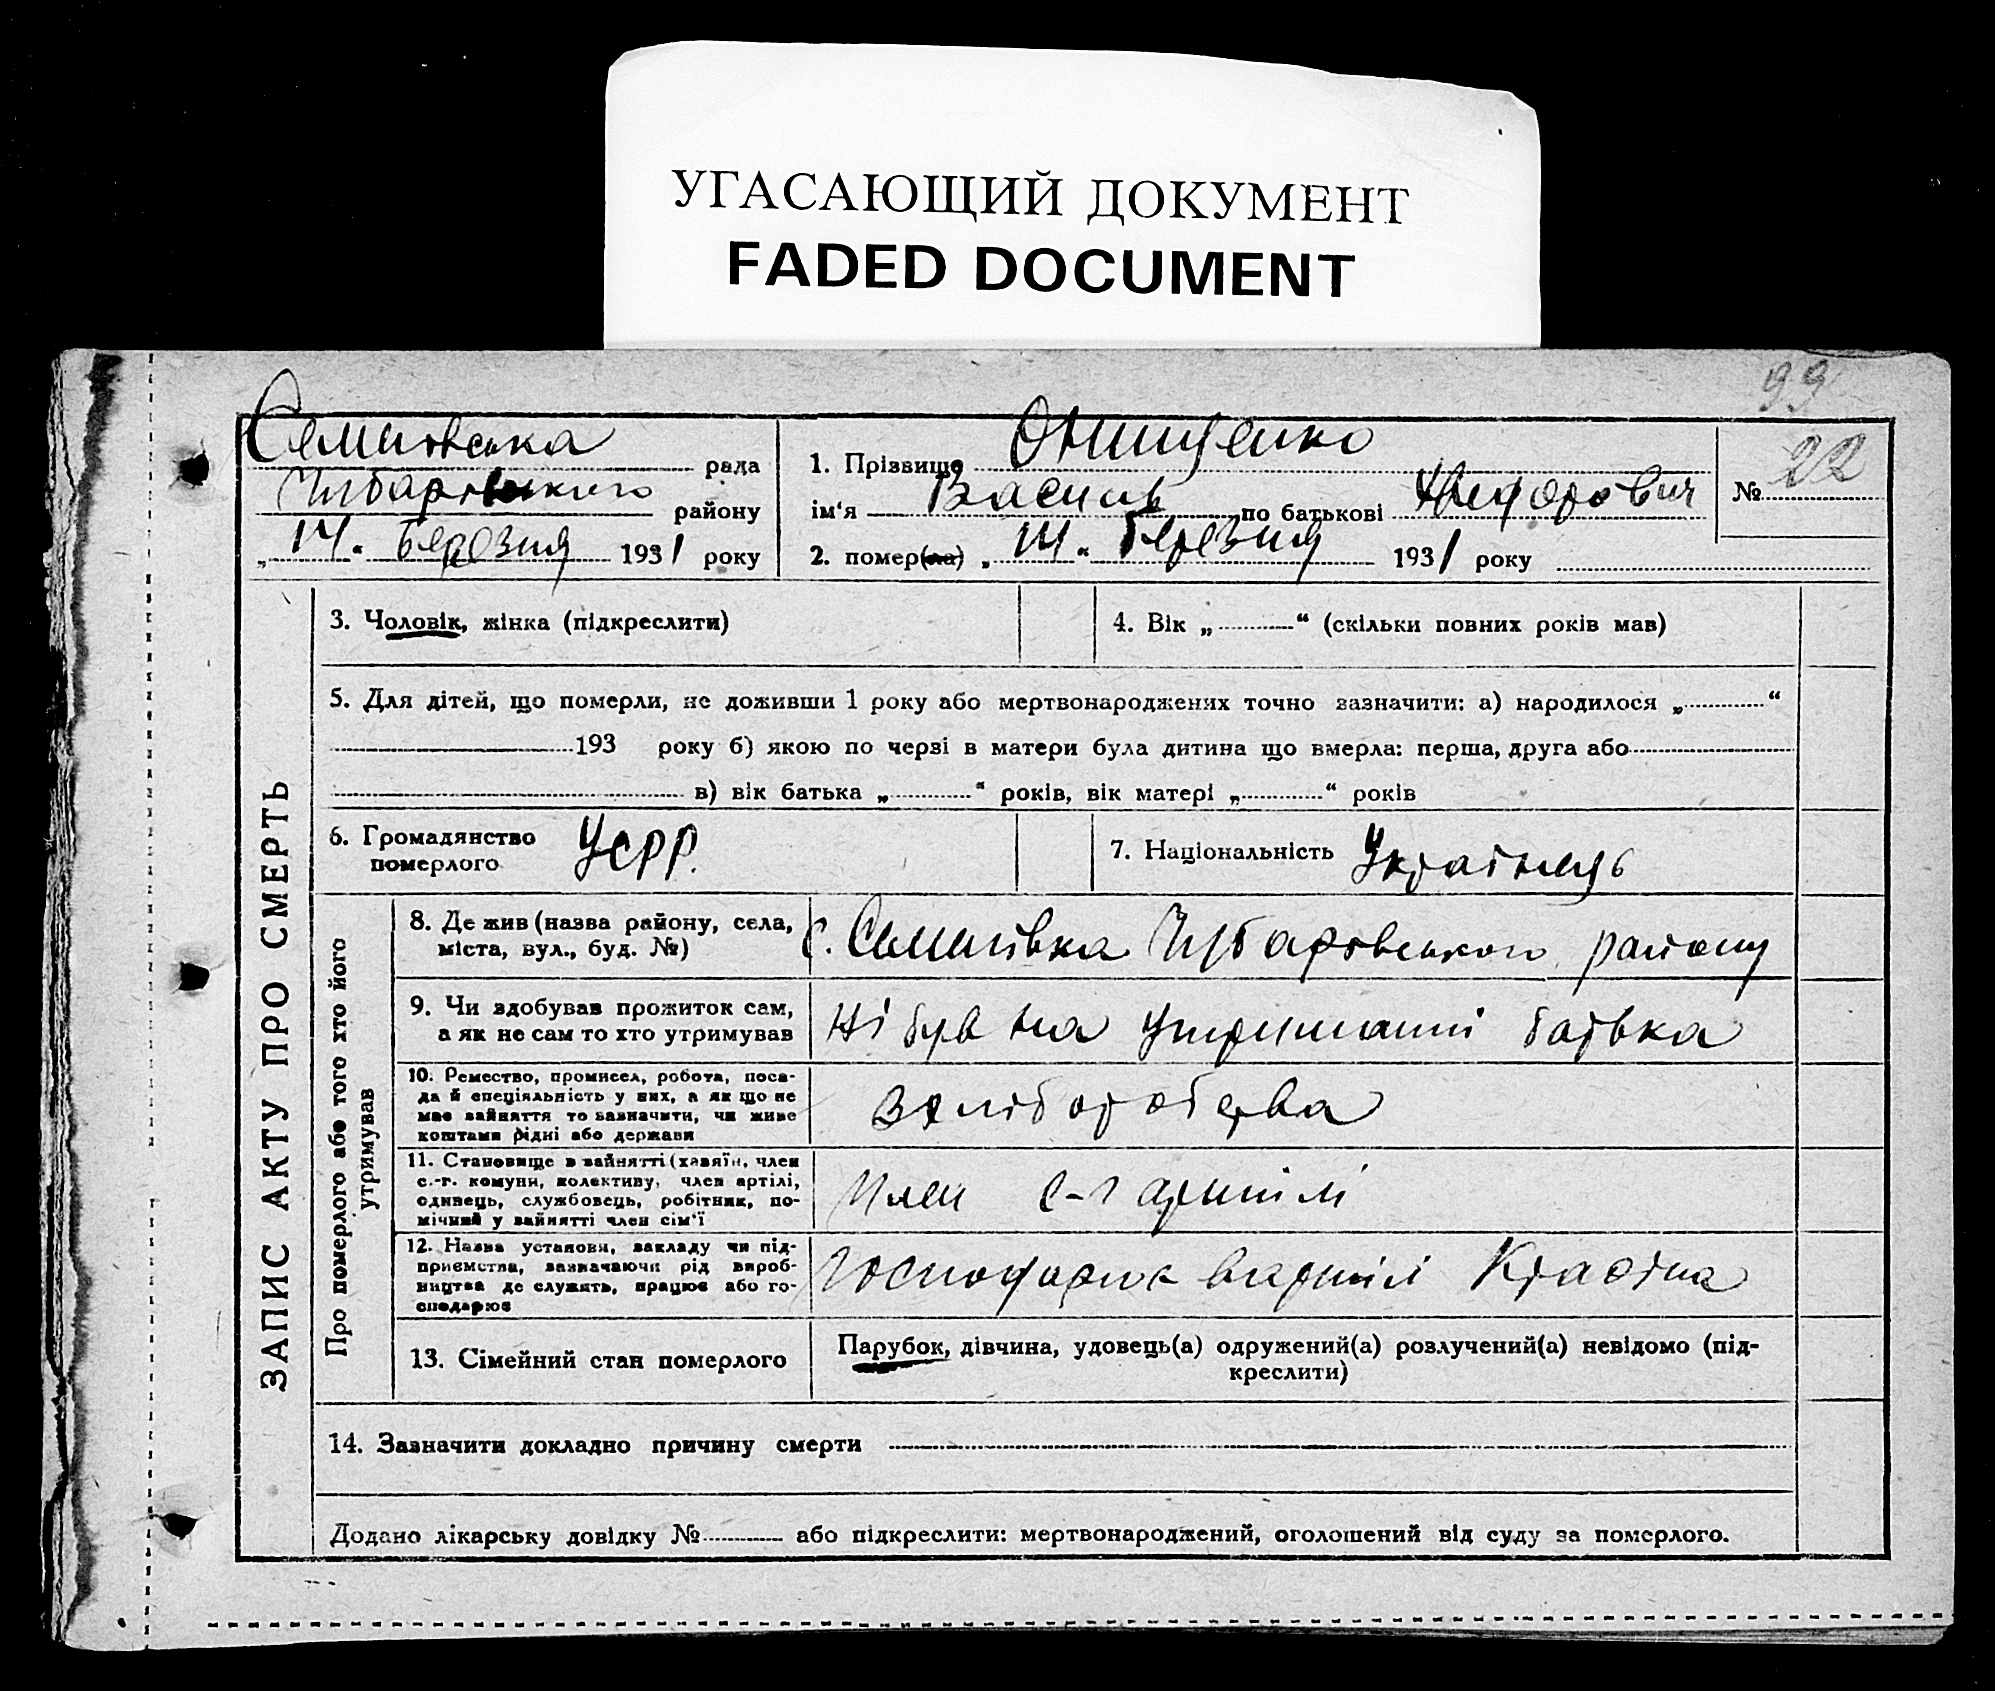 УГАСАЮЩИЙ ДОКУМЕНТ
FADED DOCUMENT
99
Семенівська рада
Чубарівського району
„14“ Березня 1931 року
1. Прізвище Онищенко
ім'я Василь по батькові Федорович
№ 22
2. помер(ла) „14“ Березня 1931 року
ЗАПИС АКТУ ПРО СМЕРТЬ
3. Чоловік, жінка (підкреслити)
4. Вік „ “ (скільки повних років мав)
5. Для дітей, що померли, не доживши 1 року або мертвонароджених точно зазначити: а) народилося „ “
193 року б) якою по черзі в матери була дитина що вмерла: перша, друга або
в) вік батька „ “ років, вік матері „ “ років
6. Громадянство
померлого
УСРР.
7. Національність Українець
Про померлого або того хто його
утримував
8. Де жив (назва району, села,
міста, вул., буд. №)
С. Семенівка Чубарівського району
9. Чи здобував прожиток сам,
а як не сам то хто утримував
Ні був на утриманні батька
10. Ремество, промисел, робота, поса-
да й спеціяльність у них, а як що не
має зайняття то зазначити, чи живе
коштами рідні або держави
Хліборобства
11. Становище в зайнятті (хазяїн, член
с.-г. комуни, колективу, член артілі,
одинець, службовець, робітник, по-
мічний у зайнятті член сім'ї
Член с-г артілі
12. Назва установи, закладу чи під-
приємства, зазначаючи рід вироб-
ництва де служить, працює або го-
сподарює
в артілі
13. Сімейний стан померлого
Парубок, дівчина, удовець(а) одружений(а) розлучений(а) невідомо (під-
креслити)
14. Зазначити докладно причину смерти
Додано лікарську довідку № або підкреслити: мертвонароджений, оголошений від суду за померлого.